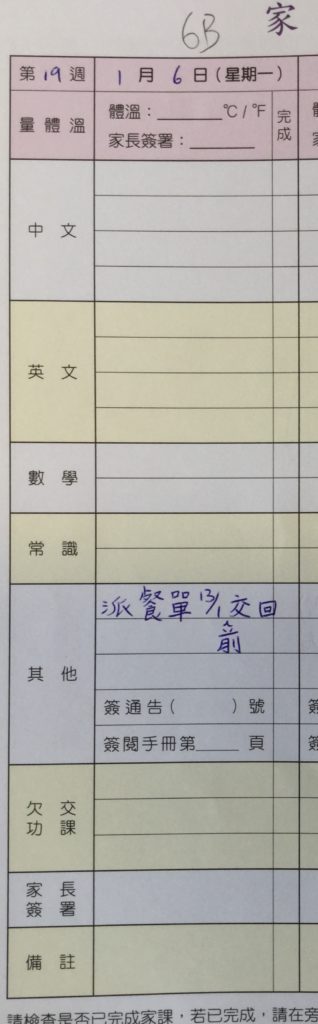 6B 家
第19週 1月6日(星期一)
量體溫 體溫:______°C/°F 完成
家長簽署:______
中文
英文
數學
常識
派餐單13/1交回
前
其他
簽通告( )號
簽閱手冊第____頁
欠交功課
家長簽署
備註
請檢查是否已完成家課,若已完成,請在旁